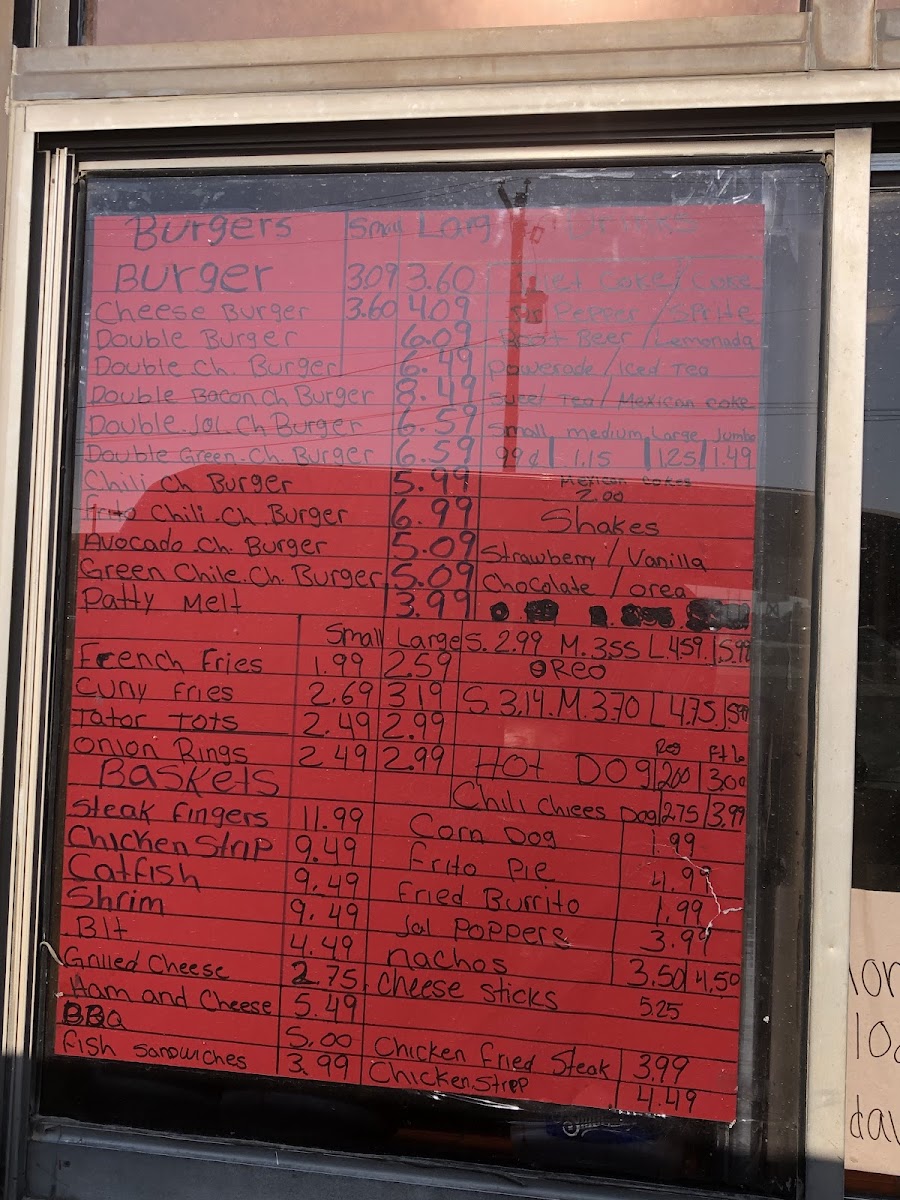 Burgers Small Larg Drinks
Burger 3.09 3.60
Cheese Burger 3.60 4.09
Double Burger 6.09
Double Ch. Burger 6.49
Double Bacon Ch Burger 8.49
Double Jal Ch Burger 6.59
Double Green Ch. Burger 6.59
Chili Ch Burger 5.99
Frito Chili Ch. Burger 6.99
Avocado Ch. Burger 5.09
Green Chile Ch. Burger 5.09
Patty Melt 3.99
Diet Coke / Coke
Dr Pepper / Sprite
Root Beer / Lemonada
Powerade / Iced Tea
Sweet Tea / Mexican coke
Small medium Large Jumbo
99¢ 1.15 1.25 1.49
Mexican cokes
2.00
Shakes
Strawberry / Vanilla
Chocolate / orea
S. 2.99 M. 3.55 L. 4.59 5.99
OReo
S. 3.14. M. 3.70 L 4.75
Small Large
French Fries 1.99 2.59
Curly Fries 2.69 3.19
Tator Tots 2.49 2.99
Onion Rings 2.49 2.99
Baskets
Steak fingers 11.99
Chicken Strip 9.49
Catfish 9.49
Shrim 9.49
Blt 4.49
Grilled Cheese 2.75
Ham and Cheese 5.49
BBQ 5.00
Fish Sandwiches 3.99
Hot Dog 2.00 3.00
Chili Chiees Dog 2.75 3.99
Corn Dog 1.99
Frito Pie 4.99
Fried Burrito 1.99
Jal Poppers 3.99
Nachos 3.50 4.50
Cheese Sticks 5.25
Chicken Fried Steak 3.99
Chicken Strep 4.49